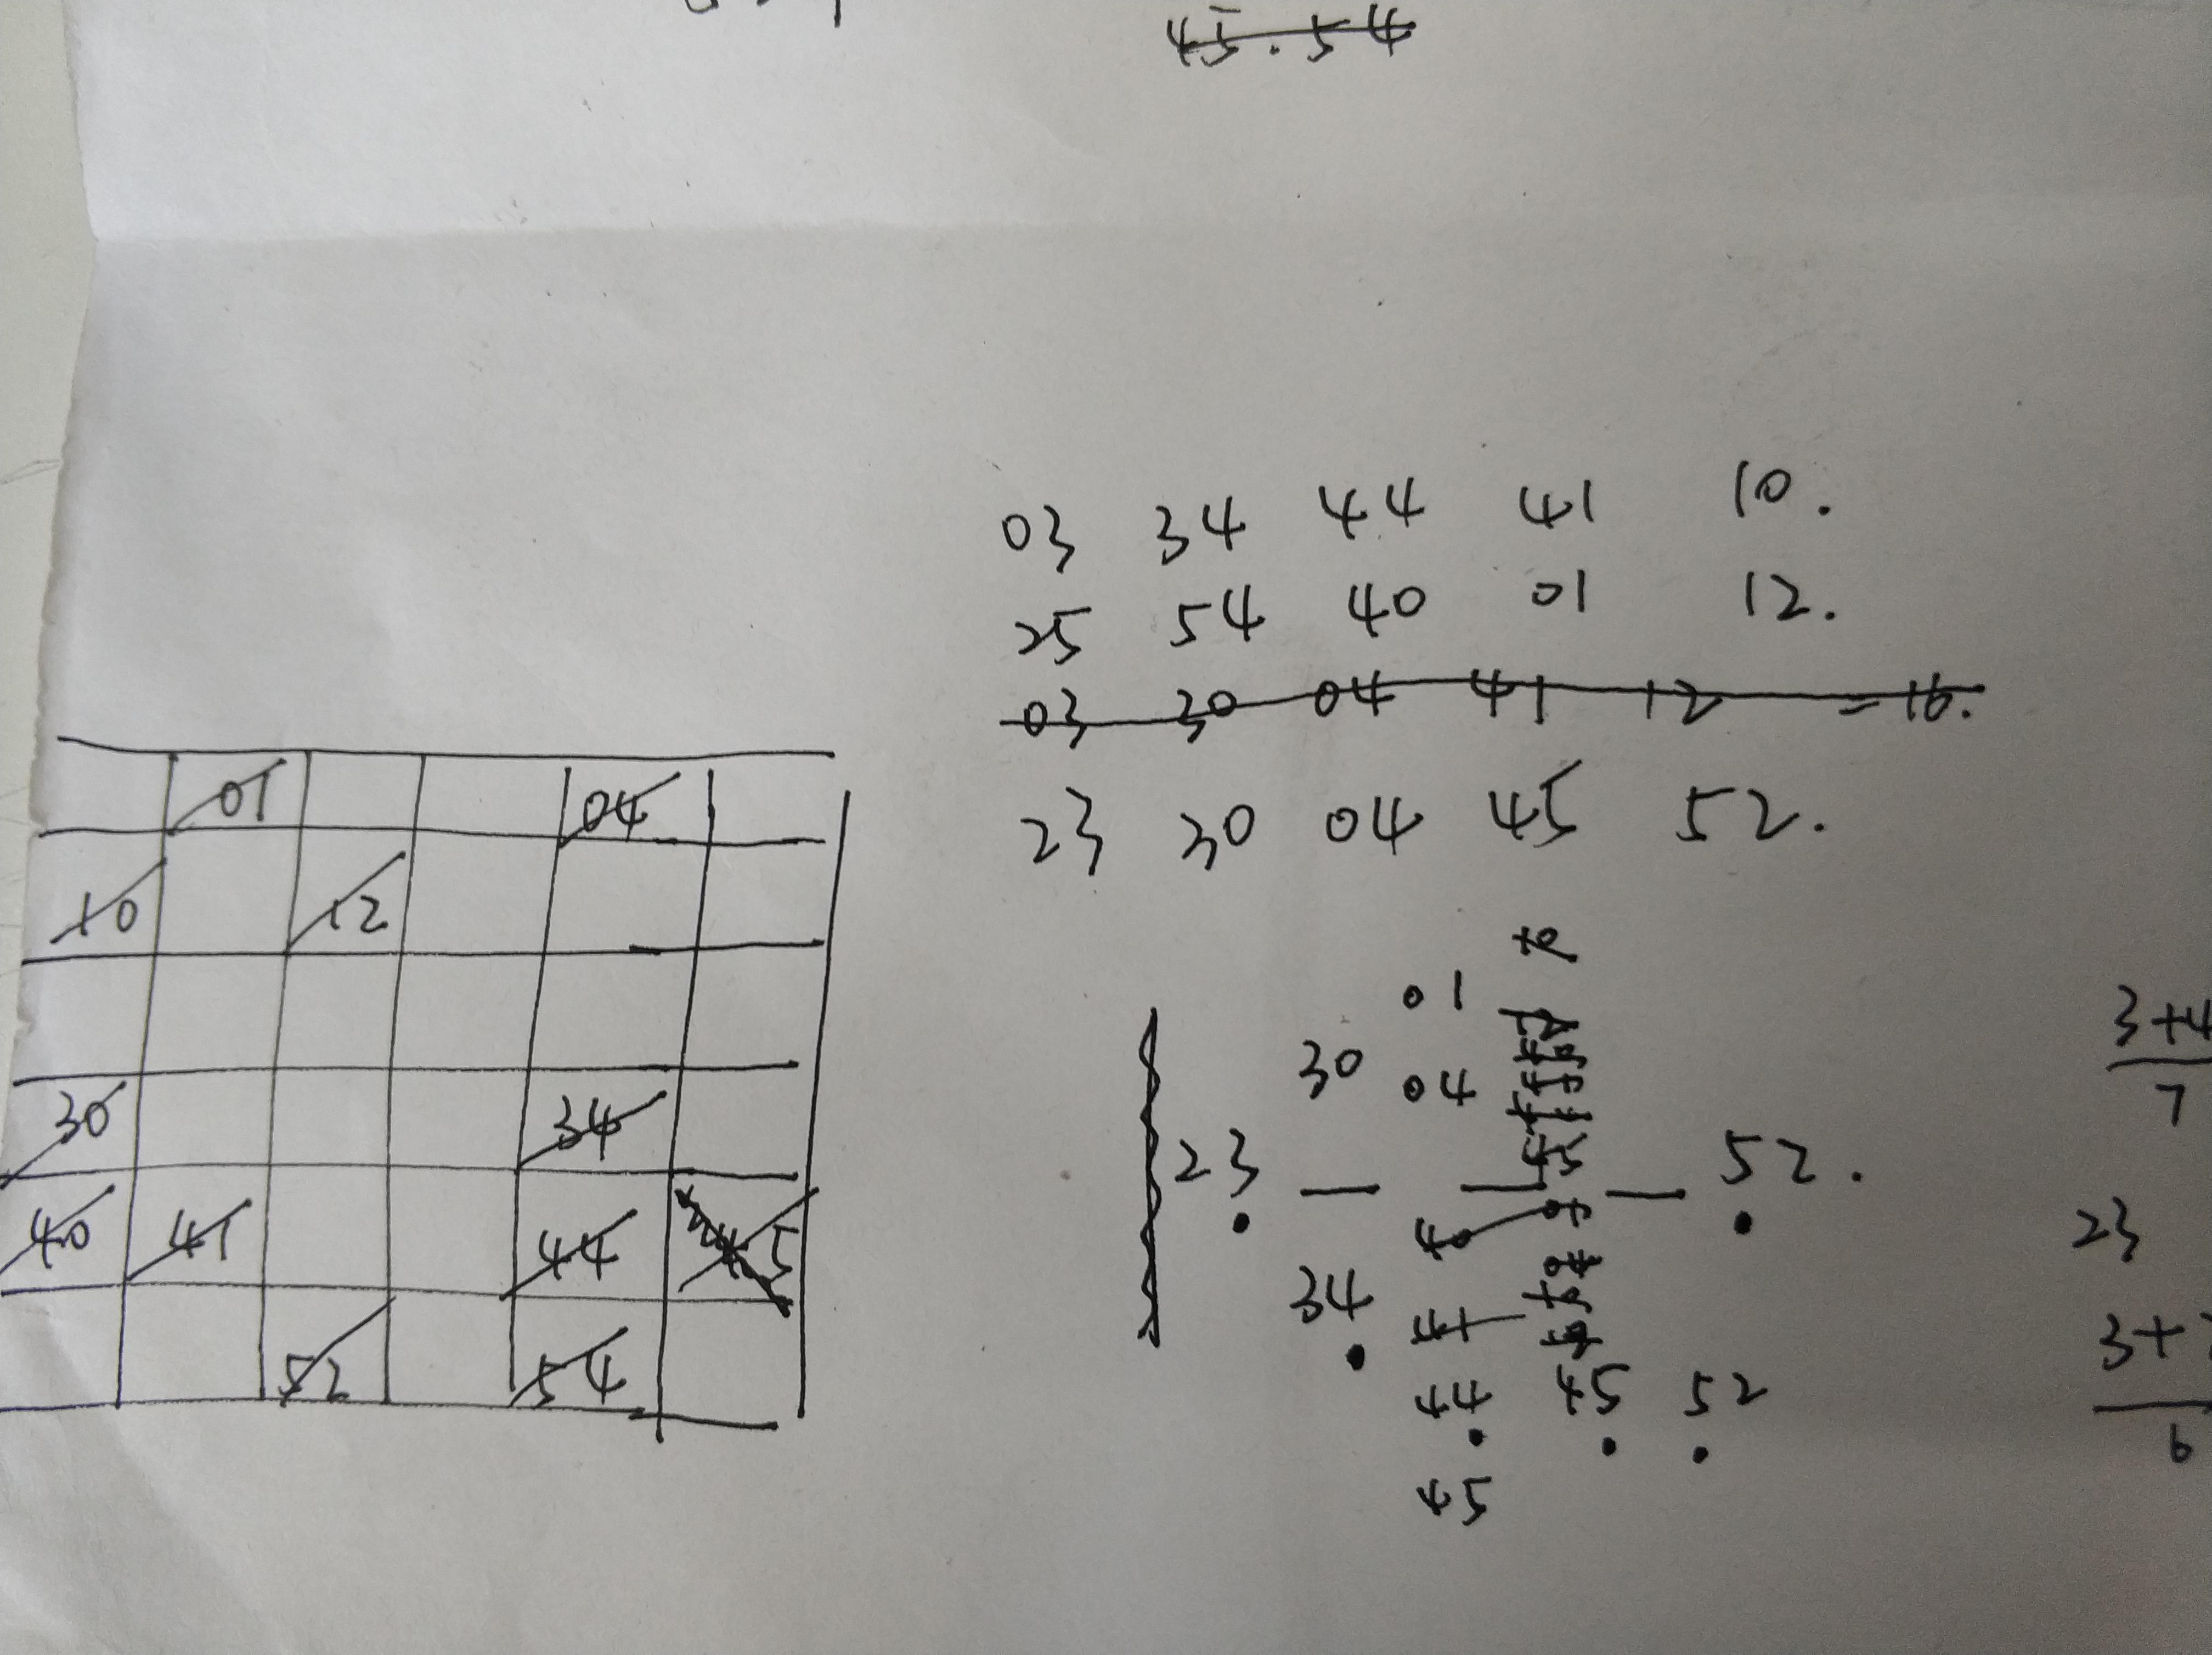 45.54
03 34 44 41 10.
25 54 40 01 12.
03 30 04 41 12 = 16.
23 30 04 45 52.
01 04
10 12
30 34
40 41 44 45
52 54
01
30 04
23 45 52.
40
34 41
44 45 52
45
3+4
7
23
3+
6